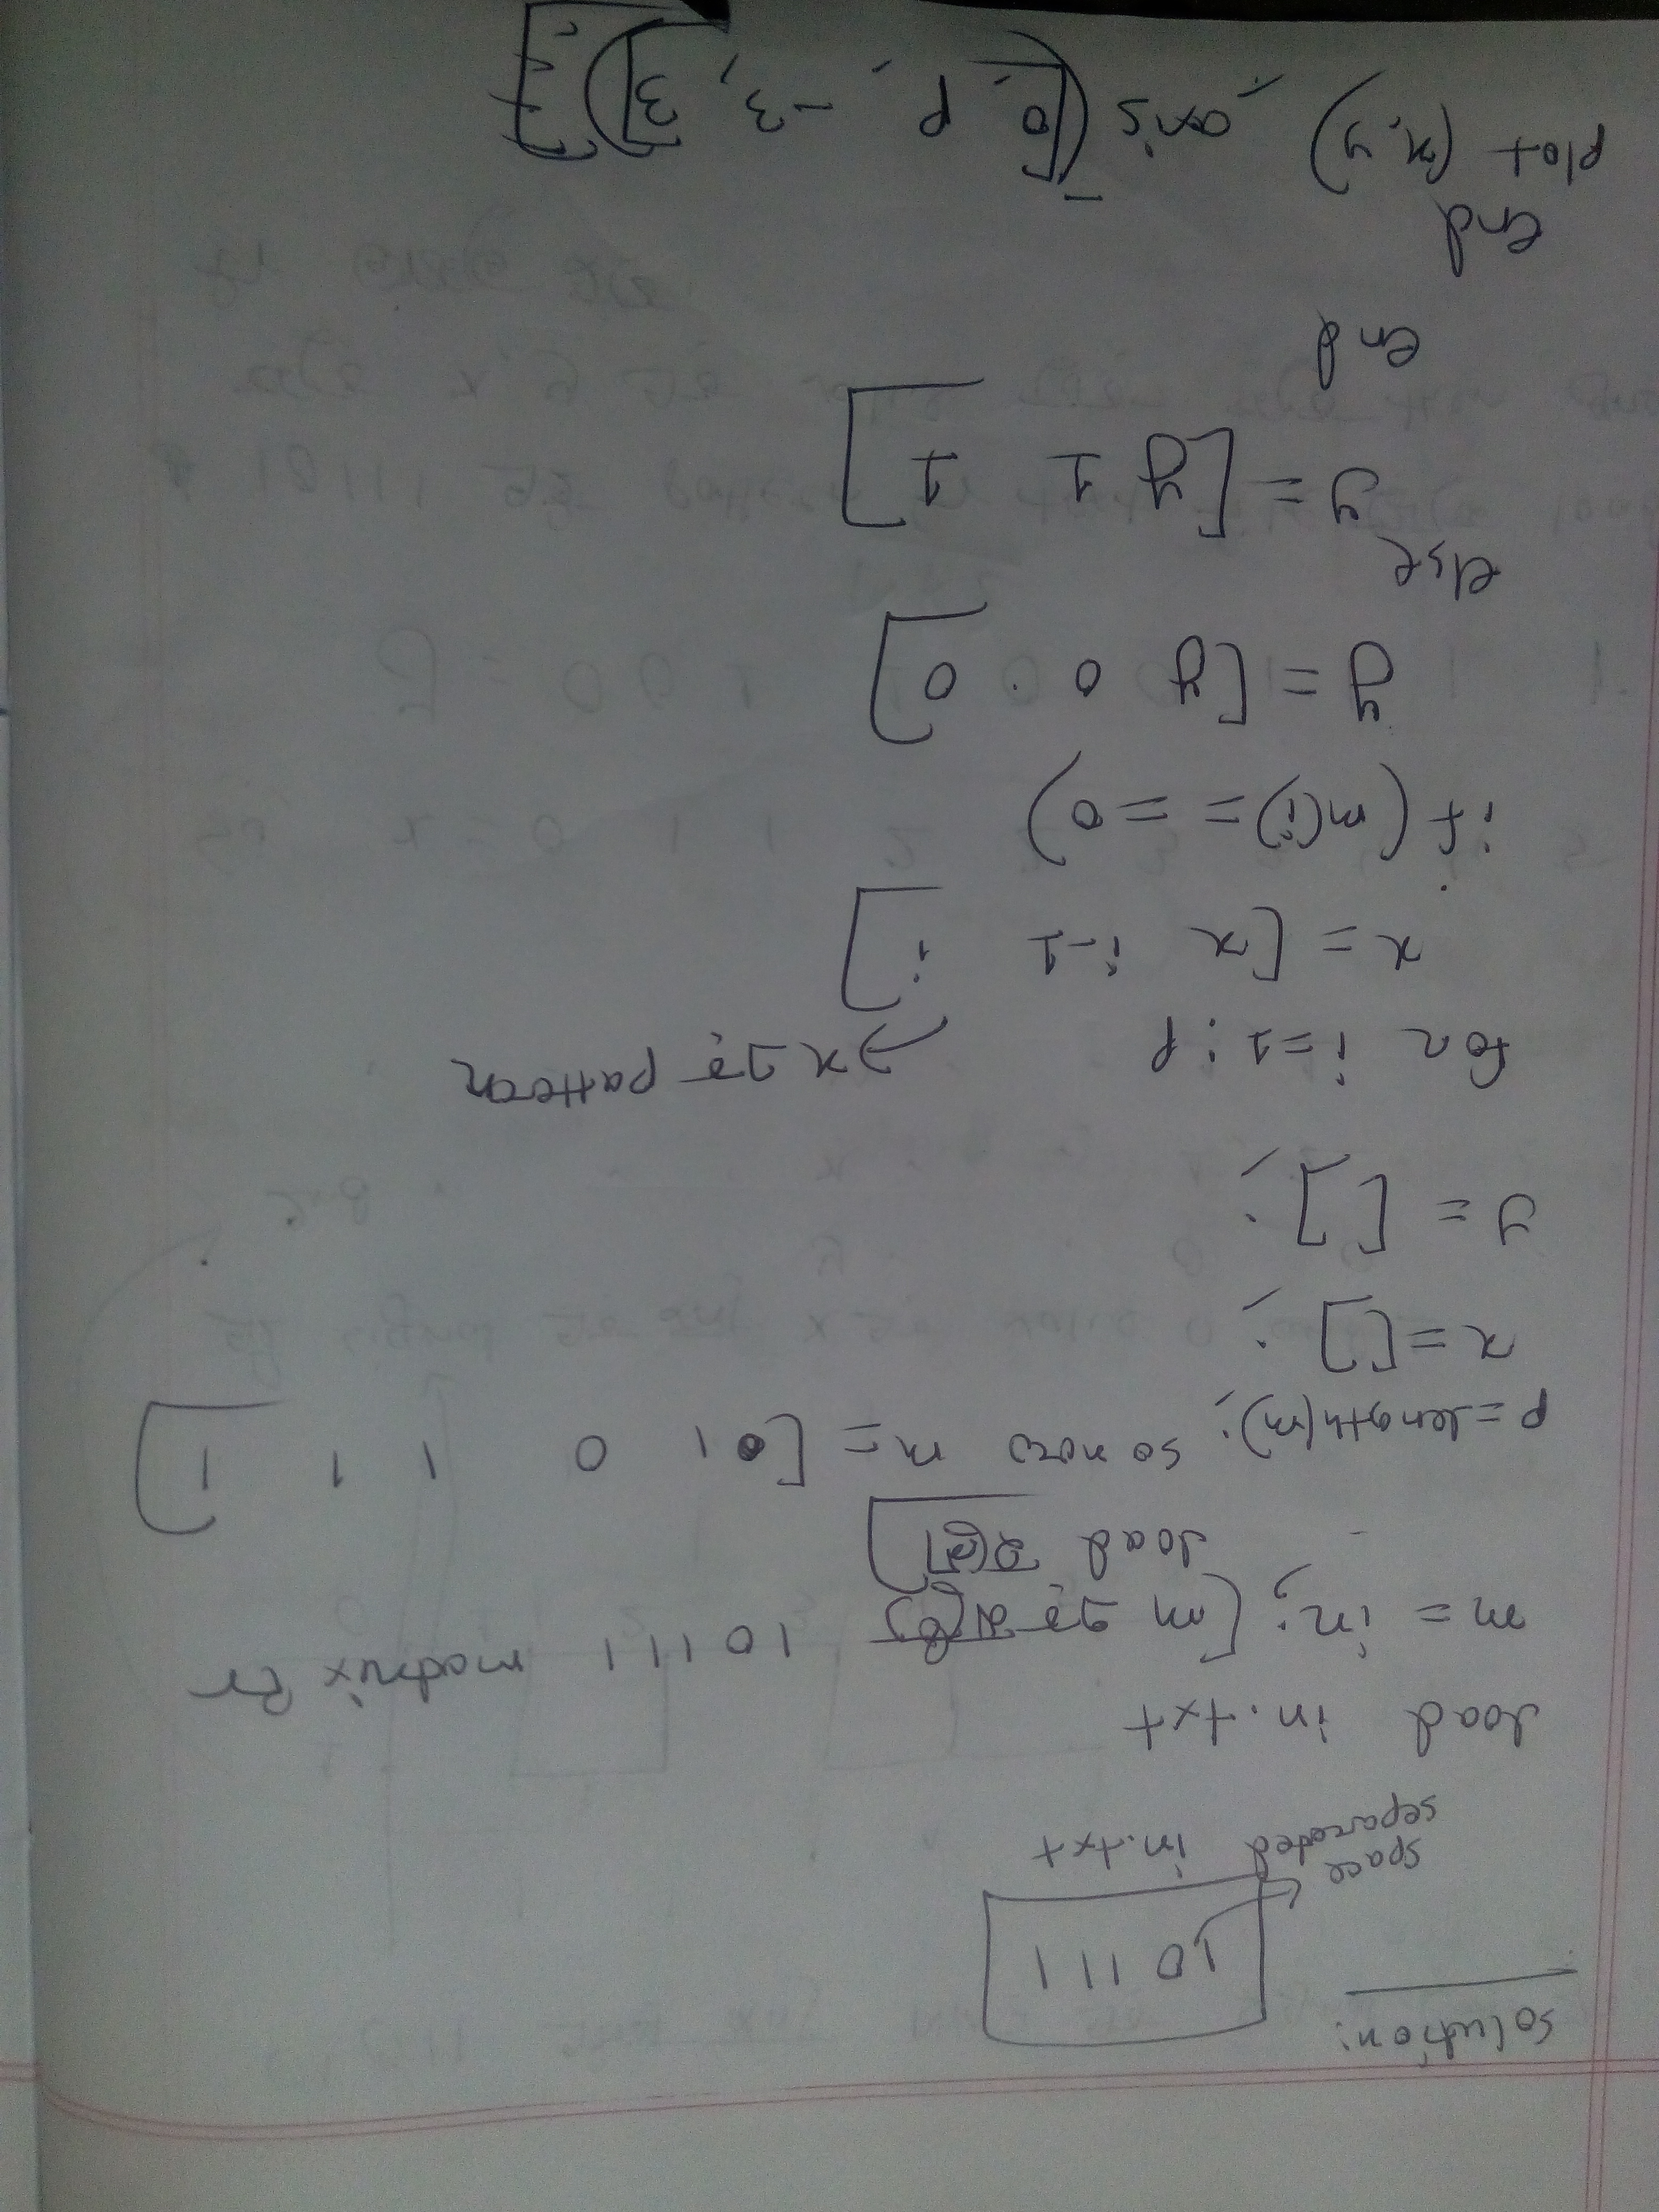 solution:
10111
space
separated in.txt
load in.txt
m = in; [m এর মধ্যে 10111 matrix টা
load হলো]
p = length(m); so now m = [1 0 1 1 1]
x = [];
y = [];
for i=1:p → x এর pattern
x = [x i-1 i]
if (m(i) = = 0)
y = [y 0 0]
else
y = [y 1 1]
end
end
plot (x, y), axis([0, p, -3, 3]);